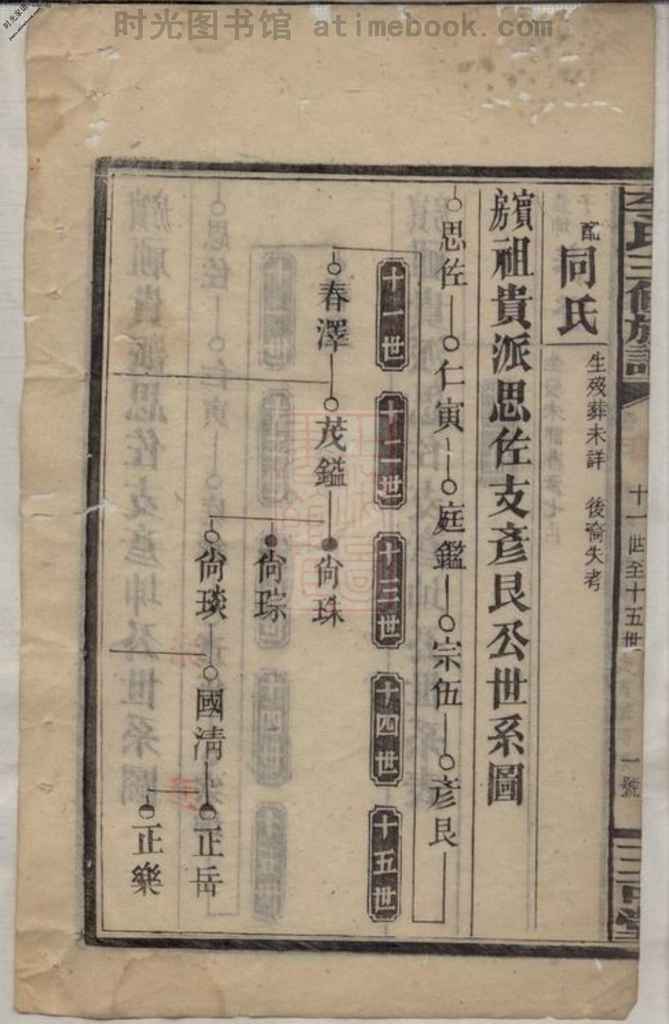 时光图书馆 atimebook.com
氏三修族譜
十一世至十五世
一號
配同氏
生殁葬未詳 後裔失考
賓房祖貴派思佐支彥艮公世系圖
思佐 仁寅 庭鑑 宗伍 彥艮
十一世 十二世 十三世 十四世 十五世
春澤 茂鎰 尙珠
尙琮
尙琰 國清 正岳
正樂